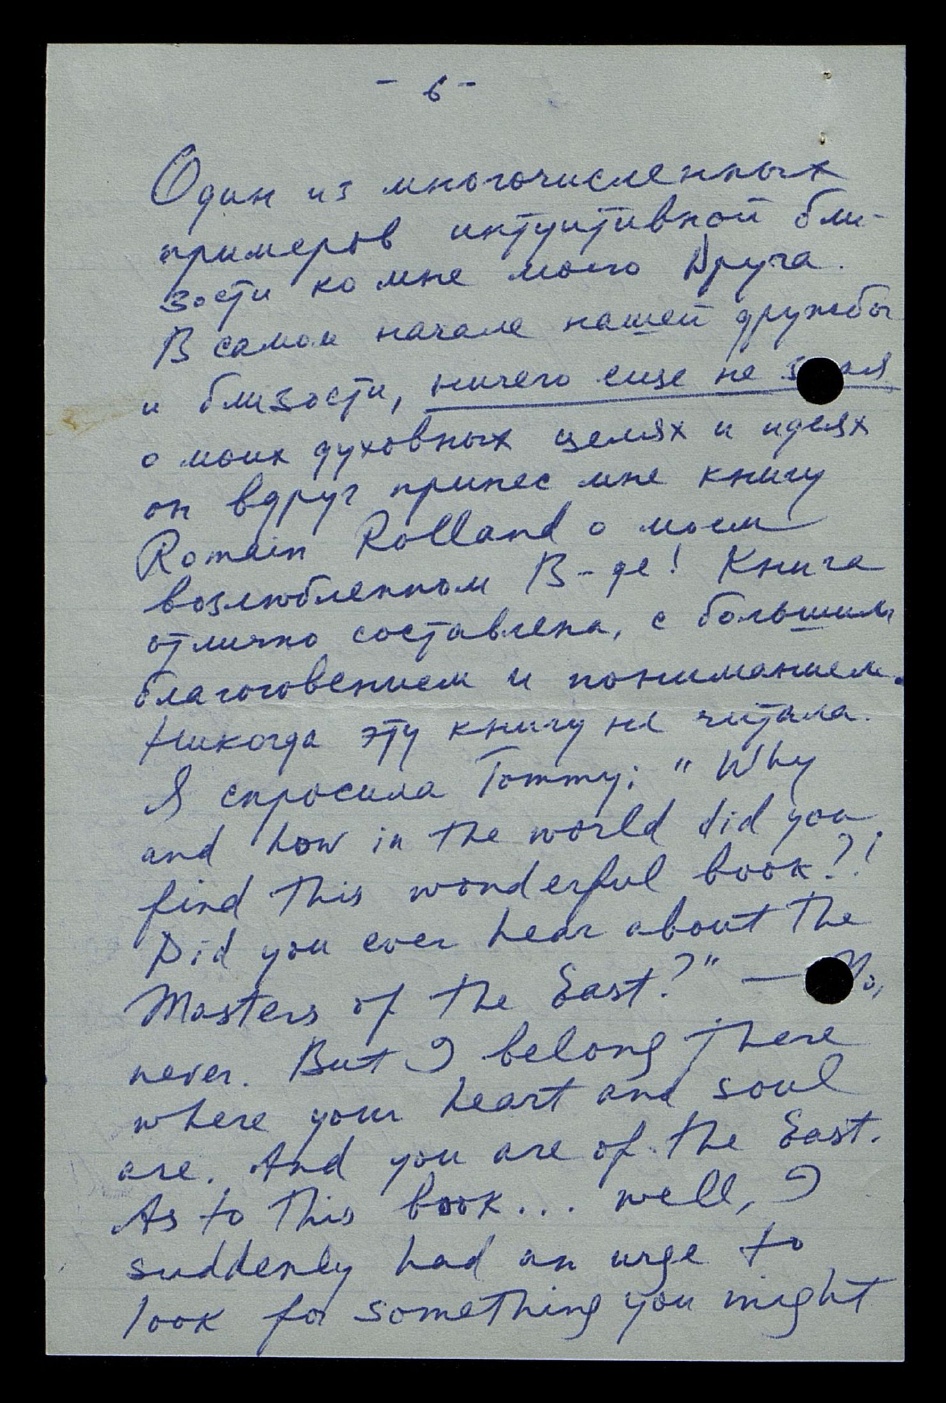 - 6 -
Один из многочисленных
примеров интуитивной бли-
зости ко мне моего Друга.
В самом начале нашей дружбы
и близости, ничего еще не зная
о моих духовных целях и идеях
он вдруг принес мне книгу
Romain Rolland о моем
возлюбленном В-де! Книга
отлично составлена, с большим
благоговением и пониманием.
Никогда эту книгу не читала.
Я спросила Tommy: "Why
and how in the world did you
find this wonderful book?!
Did you ever hear about the
Masters of the East?" — No,
never. But I belong there
where your heart and soul
are. And you are of the East.
As to this book... well, I
suddenly had an urge to
look for something you might